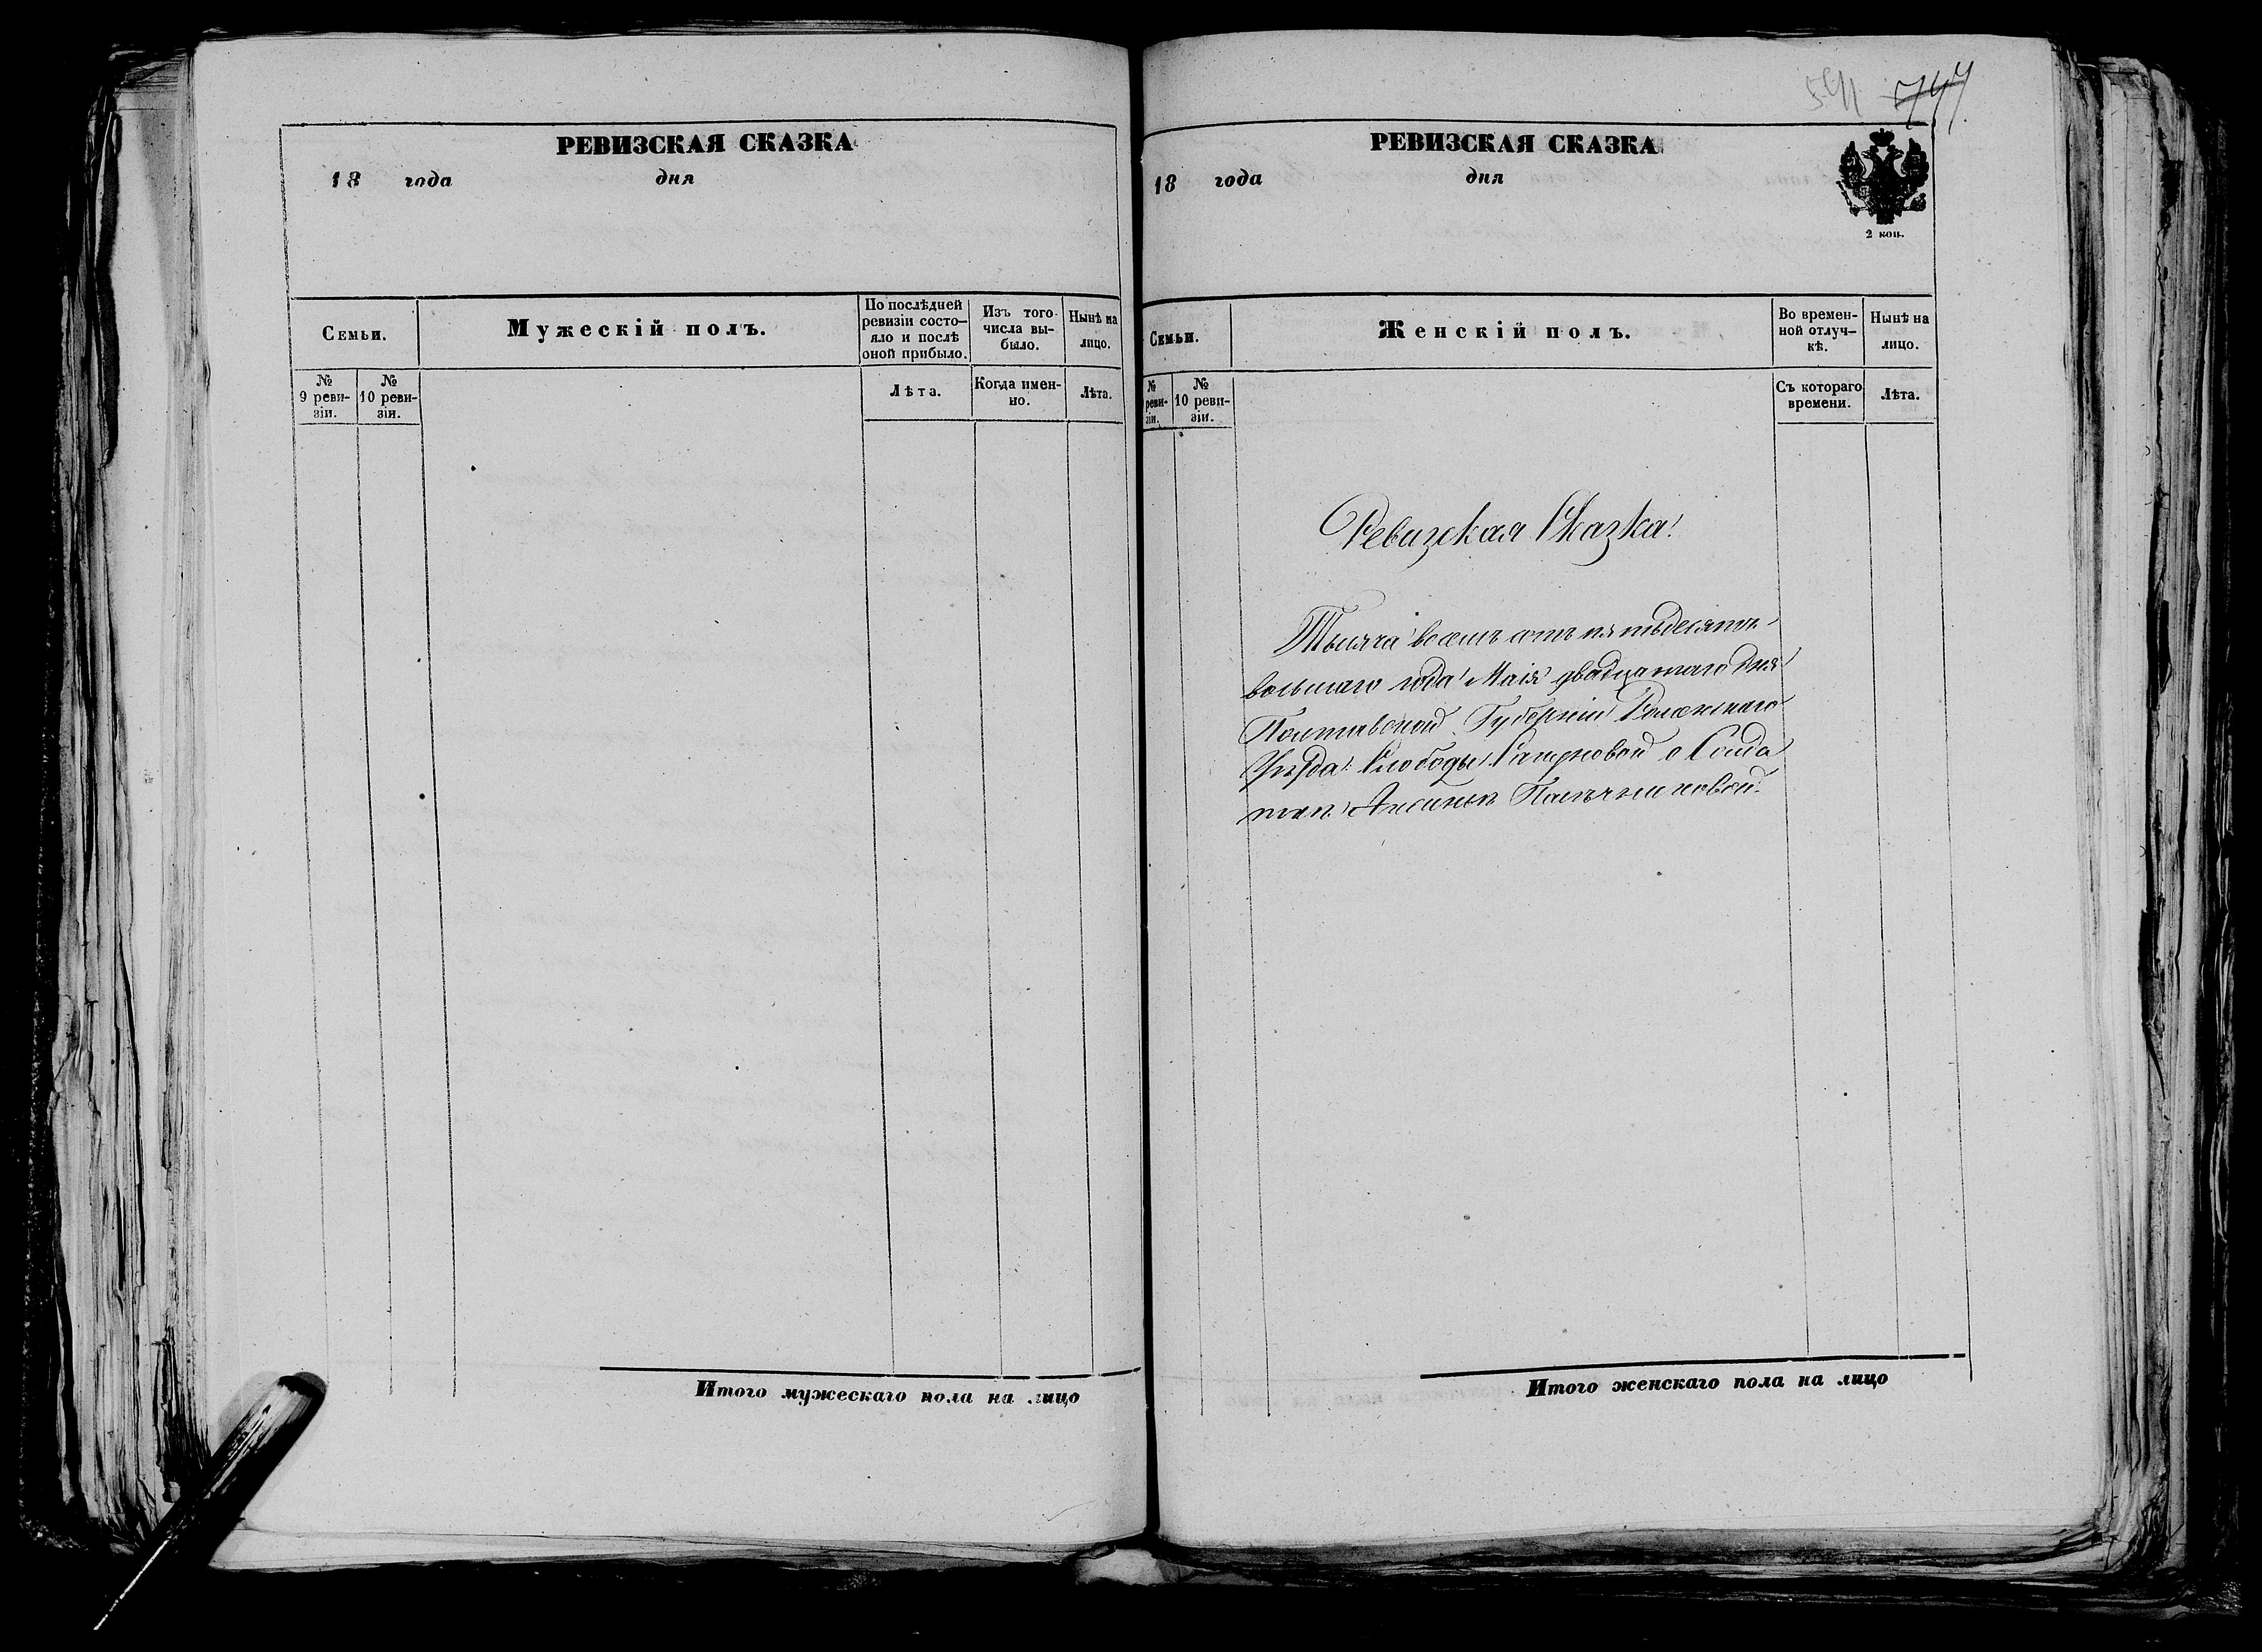 РЕВИЗСКАЯ СКАЗКА
18 года дня
Семьи.
Мужескій полъ.
По послѣдней
ревизіи состо-
яло и послѣ
оной прибыло.
Изъ того
числа вы-
было.
Нынѣ на
лицо.
№
9 реви-
зіи.
№
10 реви-
зіи.
Лѣта.
Когда имен-
но.
Лѣта.
Итого мужескаго пола на лицо
РЕВИЗСКАЯ СКАЗКА
18 года дня
2 коп.
Семьи.
Женскій полъ.
Во времен-
ной отлуч-
кѣ.
Нынѣ на
лицо.
№
реви-
зіи.
№
10 реви-
зіи.
Съ котораго
времени.
Лѣта.
Ревизская Сказка.
Тысяча восемь сотъ пятьдесятъ
восьмаго года Маія двадцатаго дня
Полтавской Губерніи Роменскаго
Уѣзда Слободы о Солда
ткѣ Аксиньѣ
Итого женскаго пола на лицо